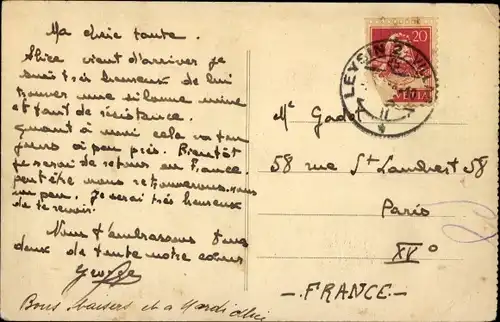 Ma chère tante.
Alice vient d'arriver je
suis très heureux de lui
trouver une si bonne mine
et tant de résistance.
Quant à moi cela va tou
jours à peu près. Bientôt
je serai de retour en France.
peut être nous retrouverons-nous
un peu. Je serai très heureux
de te revoir.
Nous t'embrassons tous
deux de toute notre cœur
George
Bons baisers et a Mardi Alice
20
HELVETIA
LEYSIN 2
Me Godot
58 rue St Lambert 58
Paris
XVo
- FRANCE -